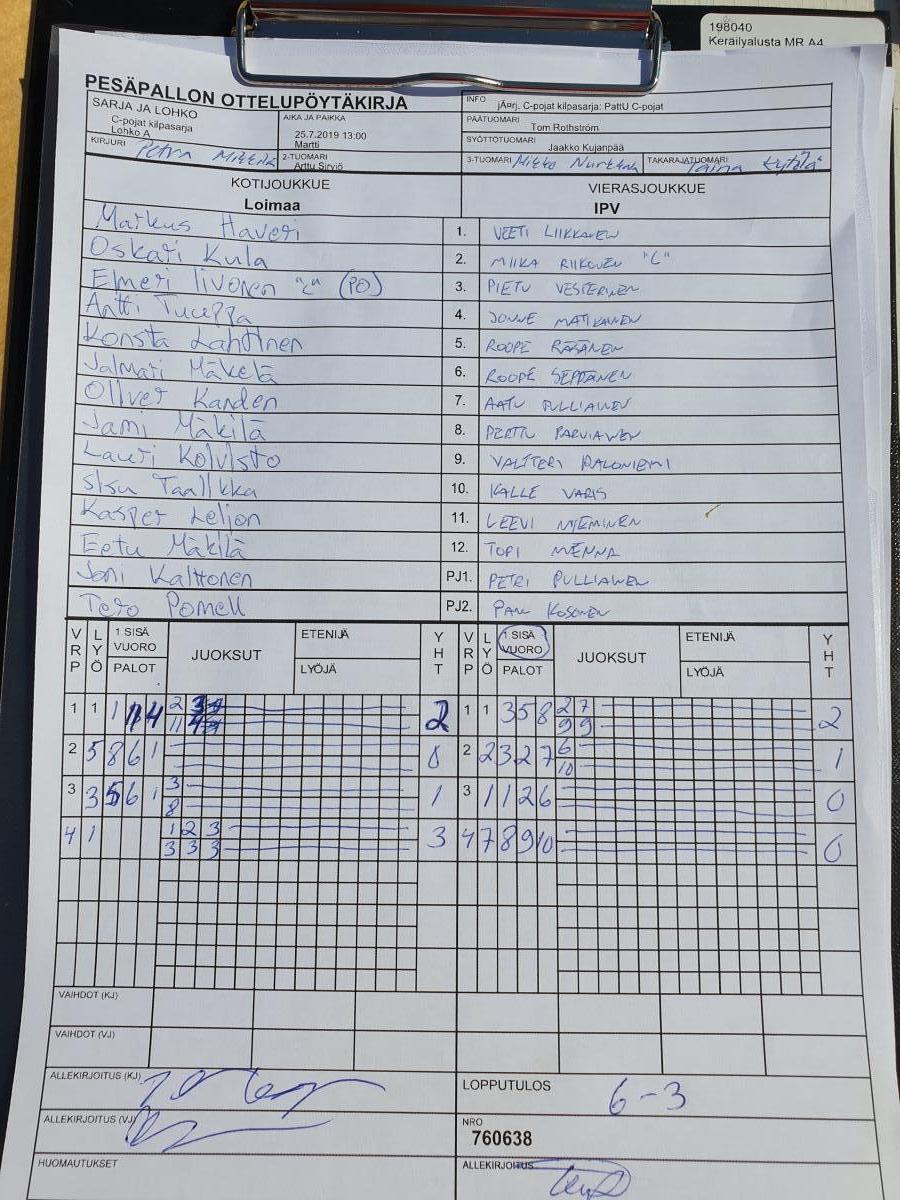 198040
Keräilyalusta MR A4
PESÄPALLON OTTELUPÖYTÄKIRJA
SARJA JA LOHKO
C-pojat kilpasarja
Lohko A
AIKA JA PAIKKA
25.7.2019 13:00
Martti
INFO
jÄ¤rj. C-pojat kilpasarja: PattU C-pojat
PÄÄTUOMARI
Tom Rothström
SYÖTTÖTUOMARI
Jaakko Kujanpää
KIRJURI Petra
2-TUOMARI
Arttu Sirviö
3-TUOMARI Mikko Nurkkala
TAKARAJATUOMARI Taina Kyhlä
KOTIJOUKKUE
Loimaa
VIERASJOUKKUE
IPV
Markus Haveri 1. VEETI LIIKKANEN
Oskari Kula 2. MIIKA RIIKONEN "C"
Elmeri Iivonen "C" (PO) 3. PIETU VESTERINEN
Antti Tuceppa 4. JONNE MATIKAINEN
Konsta Lahtinen 5. ROOPE RÄSÄNEN
Jalmari Mäkelä 6. ROOPE SEPPÄNEN
Oliver Kanden 7. AATU PULLIAINEN
Jami Mäkilä 8. PERTTU PARVIAINEN
Lauri Koivisto 9. VALTTERI PALONIEMI
Sisu Taalikka 10. KALLE VARIS
Kasper Leijon 11. LEEVI NIEMINEN
Eetu Mäkilä 12. TOPI MENNA
Joni Kalttonen PJ1. PETRI PULLIAINEN
Tero Pomell PJ2. PANU KOSONEN
VRP LYÖ 1 SISÄ VUORO PALOT JUOKSUT ETENIJÄ LYÖJÄ YHT VRP LYÖ 1 SISÄ VUORO PALOT JUOKSUT ETENIJÄ LYÖJÄ YHT
1 1 1 11 4 2 3 2 1 1 3 5 8 2 7 2
11 4 9 9
2 5 8 6 1 0 2 2 3 2 7 6 1
10
3 3 5 6 1 3 1 3 1 1 2 6 0
8
4 1 1 2 3 3 4 7 8 9 10 0
3 3 3
VAIHDOT (KJ)
VAIHDOT (VJ)
ALLEKIRJOITUS (KJ)
LOPPUTULOS 6-3
ALLEKIRJOITUS (VJ)
NRO
760638
HUOMAUTUKSET
ALLEKIRJOITUS